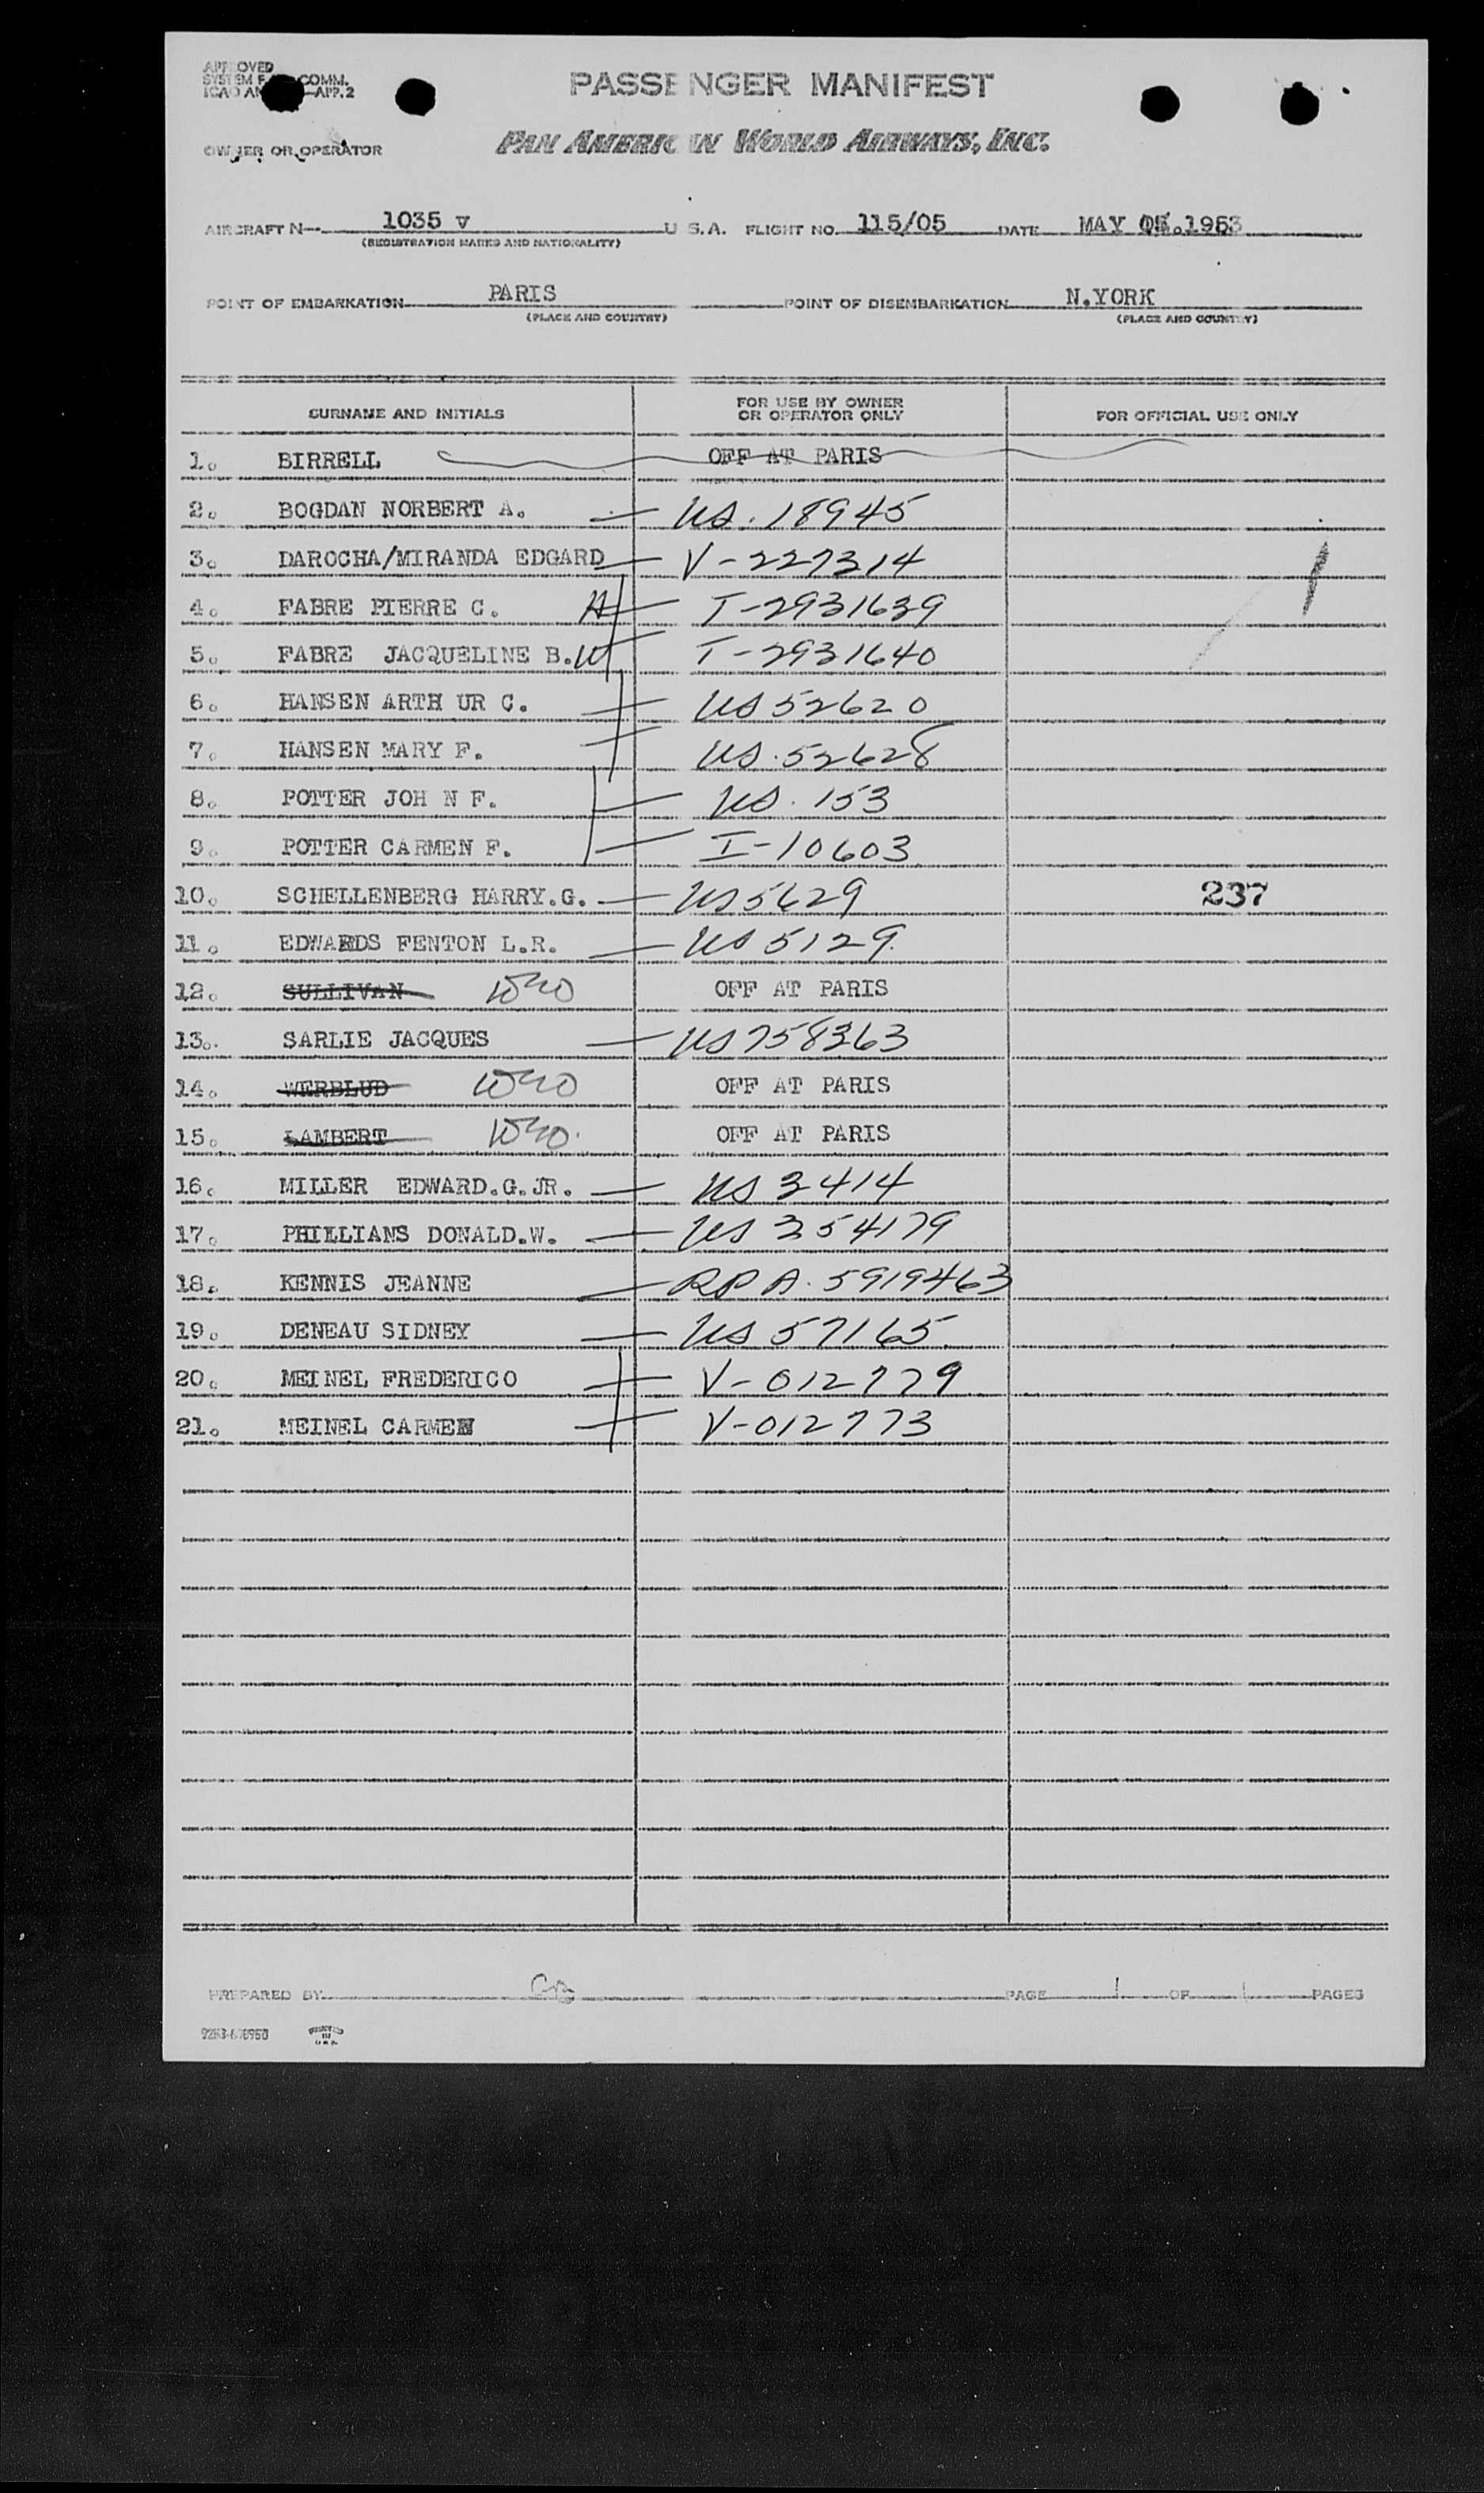 PASSENGER MANIFEST
OWNER OR OPERATOR PAN AMERICAN WORLD AIRWAYS, INC.
AIRCRAFT N 1035 V U.S.A. FLIGHT NO. 115/05 DATE MAY 05.1953
(REGISTRATION MARKS AND NATIONALITY)
POINT OF EMBARKATION PARIS POINT OF DISEMBARKATION N.YORK
(PLACE AND COUNTRY) (PLACE AND COUNTRY)
SURNAME AND INITIALS FOR USE BY OWNER OR OPERATOR ONLY FOR OFFICIAL USE ONLY
1. BIRRELL OFF AT PARIS
2. BOGDAN NORBERT A. US. 18945
3. DAROCHA/MIRANDA EDGARD V-227314
4. FABRE PIERRE C. H T-2931639
5. FABRE JACQUELINE B. W T-2931640
6. HANSEN ARTH UR C. US 52620
7. HANSEN MARY F. US. 52628
8. POTTER JOH N F. US. 153
9. POTTER CARMEN F. I-10603
10. SCHELLENBERG HARRY.G. US 5629 237
11. EDWARDS FENTON L.R. US 5129.
12. SULLIVAN OFF AT PARIS
13. SARLIE JACQUES US 758363
14. WERBLUD OFF AT PARIS
15. LAMBERT OFF AT PARIS
16. MILLER EDWARD.G.JR. US 3414
17. PHILLIANS DONALD.W. US 354179
18. KENNIS JEANNE RPA. 5919463
19. DENEAU SIDNEY US 57165
20. MEINEL FREDERICO V-012779
21. MEINEL CARMEN V-012773
PREPARED BY PAGE 1 OF 1 PAGES